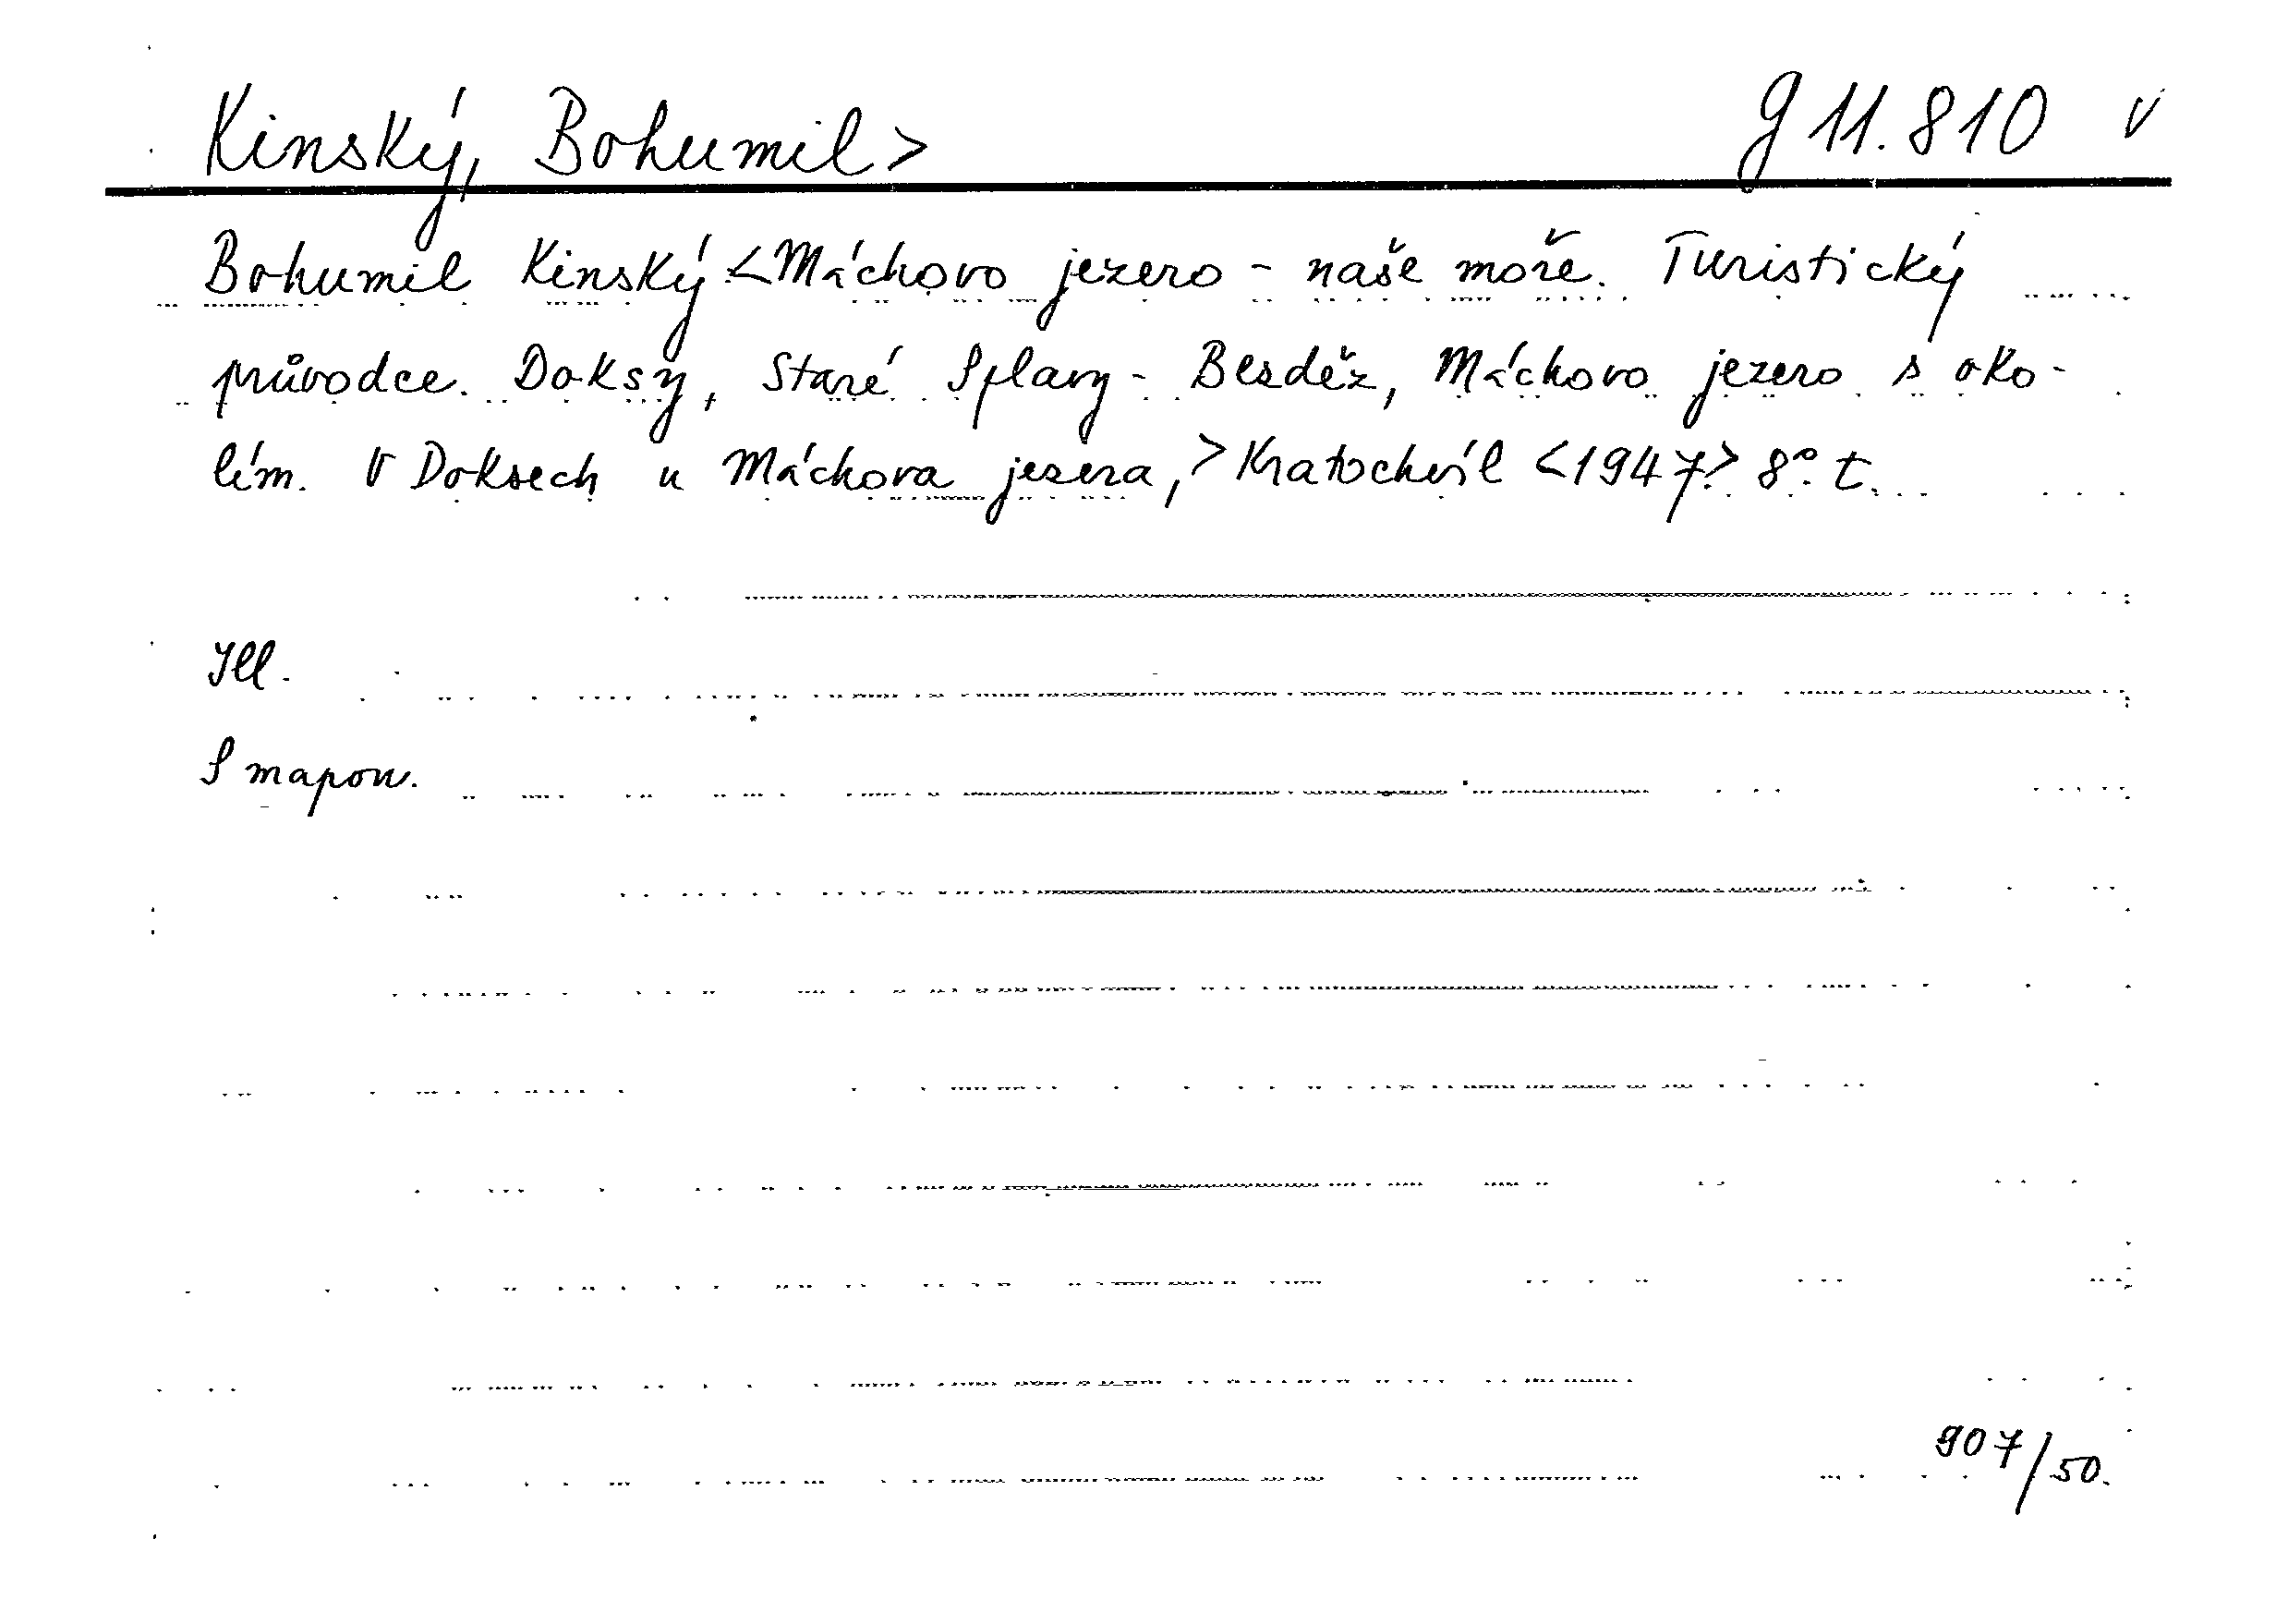 Kinský, Bohumil> g 11.810 v
Bohumil Kinský <Máchovo jezero - naše moře. Turistický
průvodce. Doksy, Staré Splavy - Bezděz, Máchovo jezero s oko-
lím. V Doksech u Máchova jezera,> Kratochvíl <1947> 8° t.
Ill.
S mapou.
907/50.